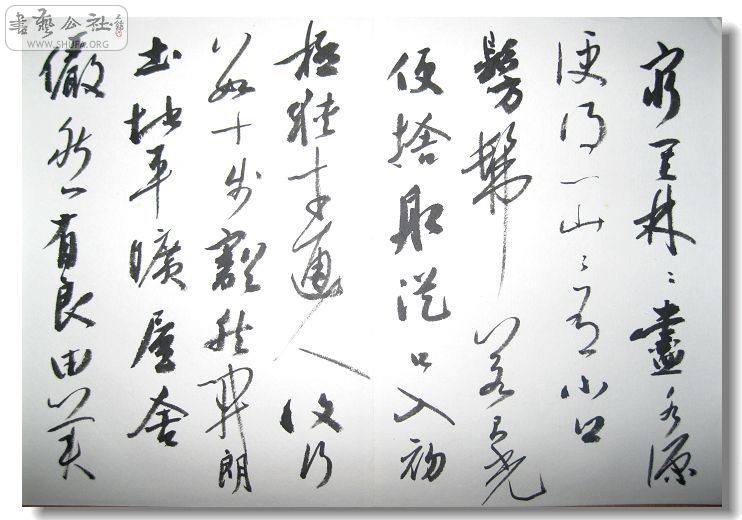 書藝公社
WWW.SHUFA.ORG
窮其林〻盡水源
便得一山〻有小口
髣髴若有光
便捨船從口入初
極狹才通人復行
數十步豁然開朗
土地平曠屋舍
儼然有良田美